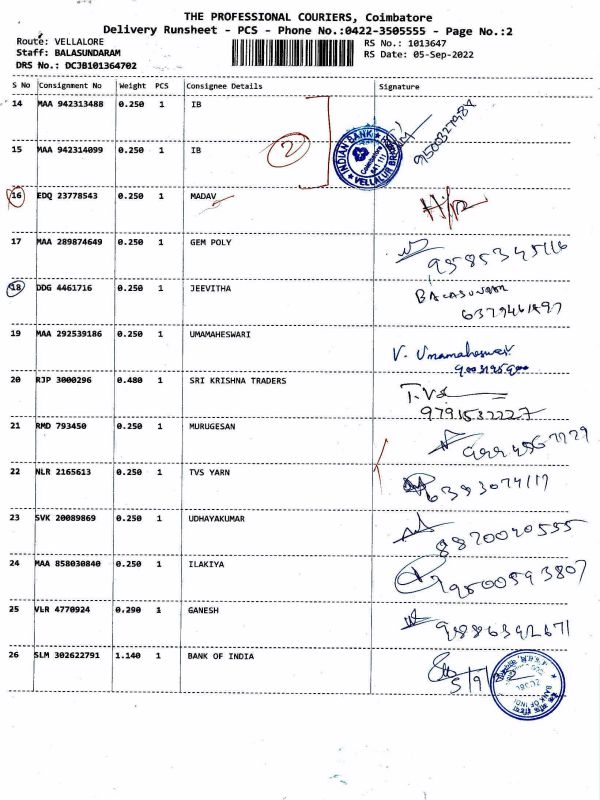 THE PROFESSIONAL COURIERS, Coimbatore
Delivery Runsheet - PCS - Phone No.:0422-3505555 - Page No.:2
Route: VELLALORE RS No.: 1013647
Staff: BALASUNDARAM RS Date: 05-Sep-2022
DRS No.: DCJB101364702
S No Consignment No Weight PCS Consignee Details Signature
14 MAA 942313488 0.250 1 IB
15 MAA 942314099 0.250 1 IB
2
INDIAN BANK
Coimbatore
VELLALUR
16 EDQ 23778543 0.250 1 MADAV
17 MAA 289874649 0.250 1 GEM POLY
9585345116
18 DDG 4461716 0.250 1 JEEVITHA
19 MAA 292539186 0.250 1 UMAMAHESWARI
V. Umamaheswari
20 RJP 3000296 0.480 1 SRI KRISHNA TRADERS
21 RMD 793450 0.250 1 MURUGESAN
22 NLR 2165613 0.250 1 TVS YARN
23 SVK 20089869 0.250 1 UDHAYAKUMAR
24 MAA 858030840 0.250 1 ILAKIYA
9500593807
25 VLR 4770924 0.290 1 GANESH
26 SLM 302622791 1.140 1 BANK OF INDIA
5/9
BANK OF INDIA